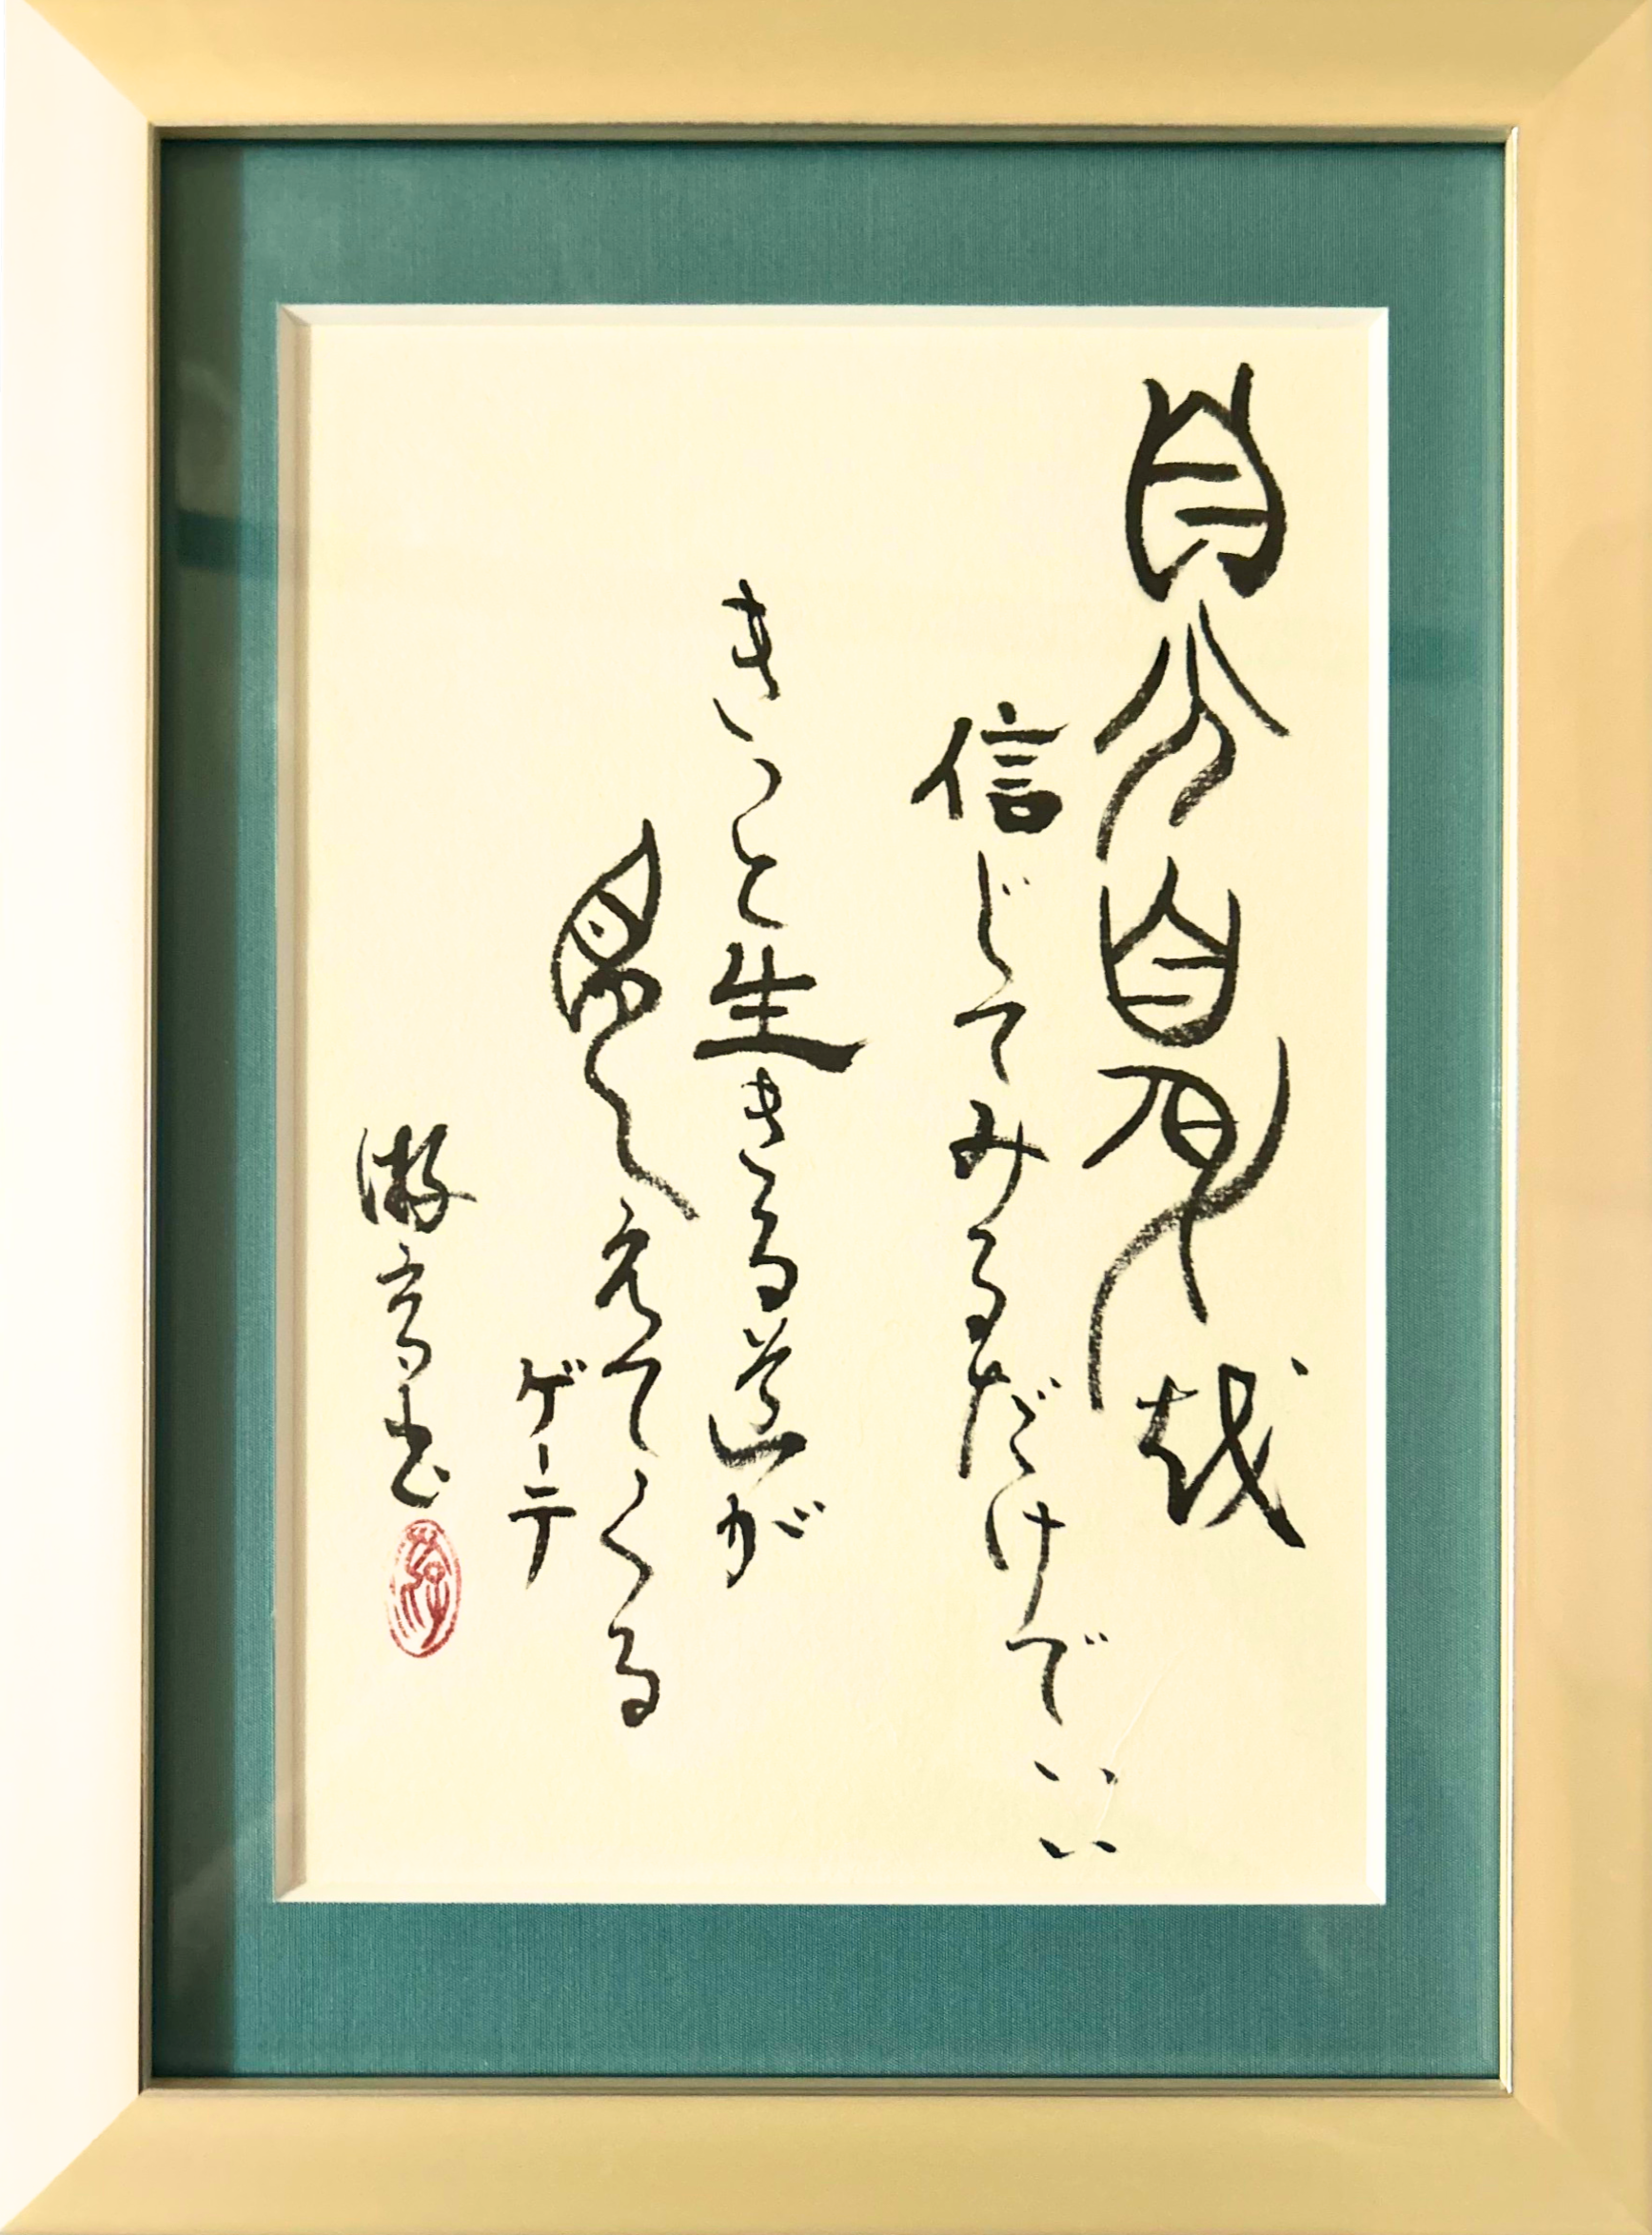 自分自身を
信じてみるだけでいい
きっと生きる道が
見えてくる
ゲーテ